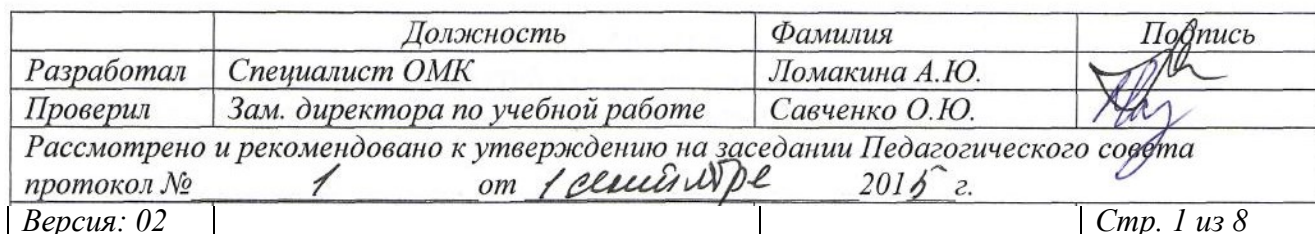 Должность Фамилия Подпись
Разработал Специалист ОМК Ломакина А.Ю.
Проверил Зам. директора по учебной работе Савченко О.Ю.
Рассмотрено и рекомендовано к утверждению на заседании Педагогического совета
протокол № 1 от 1 сентября 2015 г.
Версия: 02 Стр. 1 из 8